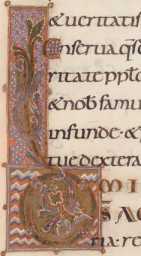 & ueritatis
Conserua qs d
ritate ppło
& nob famu
infunde · &
tue dextera
OMI
SAC
ria · re